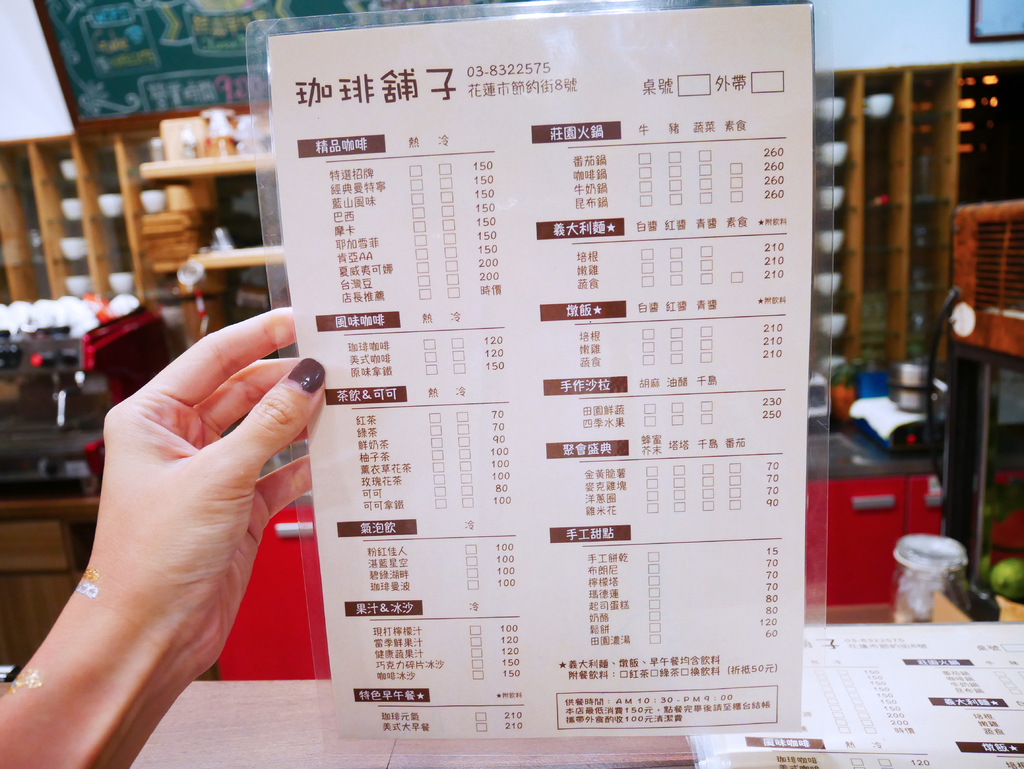 珈琲舖子
03-8322575
花蓮市節約街8號
桌號 外帶
精品咖啡 熱 冷
特選招牌 150
經典曼特寧 150
藍山風味 150
巴西 150
摩卡 150
耶加雪菲 150
肯亞AA 150
夏威夷可娜 200
台灣豆 200
店長推薦 時價
風味咖啡 熱 冷
珈琲咖啡 120
美式咖啡 120
原味拿鐵 150
茶飲&可可 熱 冷
紅茶 70
綠茶 70
鮮奶茶 90
柚子茶 100
薰衣草花茶 100
玫瑰花茶 100
可可 80
可可拿鐵 100
氣泡飲 冷
粉紅佳人 100
湛藍星空 100
碧綠湖畔 100
珈琲曼波 100
果汁&冰沙 冷
現打檸檬汁 100
當季鮮果汁 120
健康蔬果汁 120
巧克力碎片冰沙 150
咖啡冰沙 150
特色早午餐★ ★附飲料
珈琲元氣 210
美式大早餐 210
莊園火鍋 牛 豬 蔬菜 素食
番茄鍋 260
咖啡鍋 260
牛奶鍋 260
昆布鍋 260
義大利麵★ 白醬 紅醬 青醬 素食 ★附飲料
培根 210
嫩雞 210
蔬食 210
燉飯★ 白醬 紅醬 青醬 ★附飲料
培根 210
嫩雞 210
蔬食 210
手作沙拉 胡麻 油醋 千島
田園鮮蔬 230
四季水果 250
聚會盛典 蜂蜜芥末 塔塔 千島 番茄
金黃脆薯 70
麥克雞塊 70
洋蔥圈 70
雞米花 90
手工甜點
手工餅乾 15
布朗尼 70
檸檬塔 70
瑪德蓮 70
起司蛋糕 80
奶酪 80
鬆餅 120
田園濃湯 60
★義大利麵、燉飯、早午餐均含飲料
附餐飲料:□紅茶□綠茶□換飲料 (折抵50元)
供餐時間:AM 10:30-PM 9:00
本店最低消費150元,點餐完畢後請至櫃台結帳
攜帶外食酌收100元清潔費